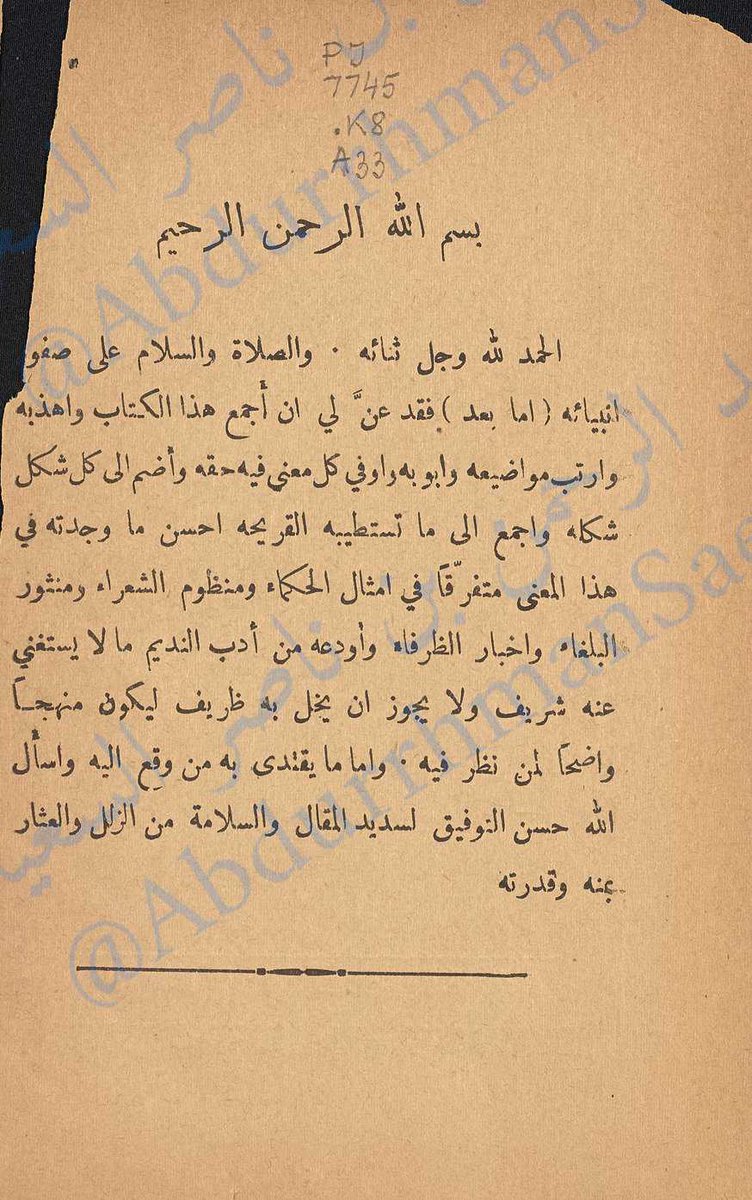 PJ
7745
.K8
A33
بسم الله الرحمن الرحيم
الحمد لله وجل ثنائه · والصلاة والسلام على صفو
انبيائه ( اما بعد ) فقد عنَّ لي ان أجمع هذا الكتاب واهذبه
وارتب مواضيعه وابوبه واوفي كل معنى فيه حقه وأضم الى كل شكل
شكله واجمع الى ما تستطيبه القريحه احسن ما وجدته في
هذا المعنى متفرّقاً في امثال الحكماء ومنظوم الشعراء ومنثور
البلغاء واخبار الظرفاء وأودعه من أدب النديم ما لا يستغني
عنه شريف ولا يجوز ان يخل به ظريف ليكون منهجاً
واضحاً لمن نظر فيه · واما ما يقتدى به من وقع اليه واسأل
الله حسن التوفيق لسديد المقال والسلامة من الزلل والعثار
بمنه وقدرته